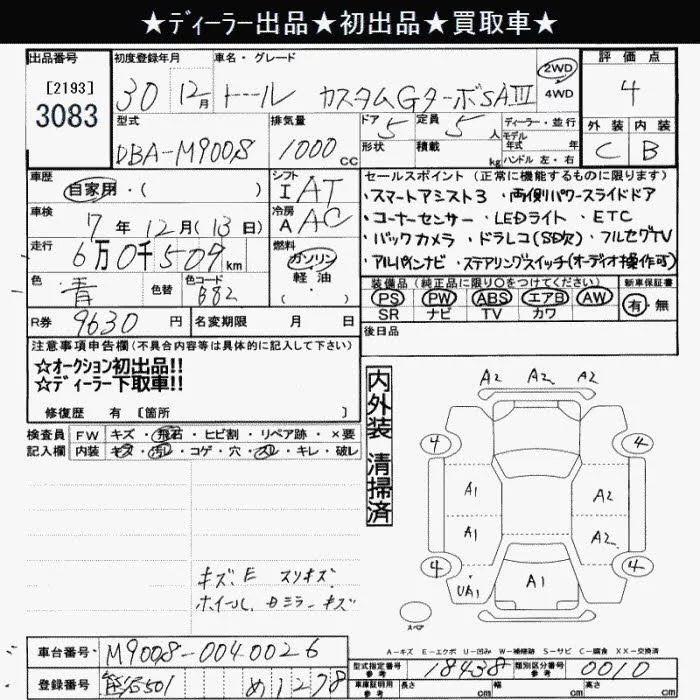 ★ディーラー出品★初出品★買取車★
出品番号 初度登録年月 車名・グレード 2WD 評価点
[2193] 3083 30 12月 トール カスタムGターボSAⅢ 4WD 4
型式 排気量 ドア 5 定員 5人 ディーラー・並行 外装 内装
DBA-M900S 1000cc 形状 積載 kg モデル年式 年 ハンドル 左・右 C B
車歴 シフト セールスポイント(正常に機能するものに限ります)
自家用・( ) I AT ・スマートアシスト3 ・両側パワースライドドア
車検 冷房 ・コーナーセンサー ・LEDライト ・ETC
7年12月(13日) A AC ・バックカメラ ・ドラレコ(SD欠) ・フルセグTV
走行 6万0千509km 燃料 ガソリン ・アルパインナビ ・ステアリングスイッチ(オーディオ操作可)
軽油 装備品(純正品に限り○をつけてください) 新車保証書
色 青 色替 色コード B82 ( ) PS PW ABS エアB AW 有・無
SR ナビ TV カワ
R券 9630円 名変期限 月 日 後日品
注意事項申告欄(不具合内容等は具体的に記入して下さい)
☆オークション初出品!!
☆ディーラー下取車!!
修復歴 有 [箇所 ]
内外装 清掃済
検査員 FW キズ・飛石・ヒビ割・リペア跡・×要
記入欄 内装 キズ・汚レ・コゲ・穴・スレ・キレ・破レ
A2 A2 A2
4 4
A1 A2
A1 A2
4 4
UA1 A1
キズ、E スリキズ
ホイール、Dミラーキズ
スペア
A-キズ E-エクボ U-凹み W-補修跡 S-サビ C-腐食 XX-交換済
車台番号 M900S-0040026
型式指定番号 参考 18438 類別区分番号 参考 0010
登録番号 501 め1278
車庫証明用 参考 長さ cm 幅 cm 高さ cm